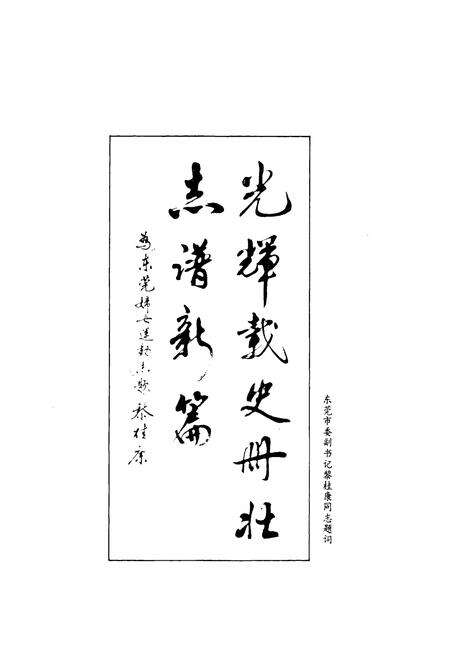 光輝载史册壮
志谱新篇
为东莞妇女运动志题 黎桂康
东莞市委副书记黎桂康同志题词